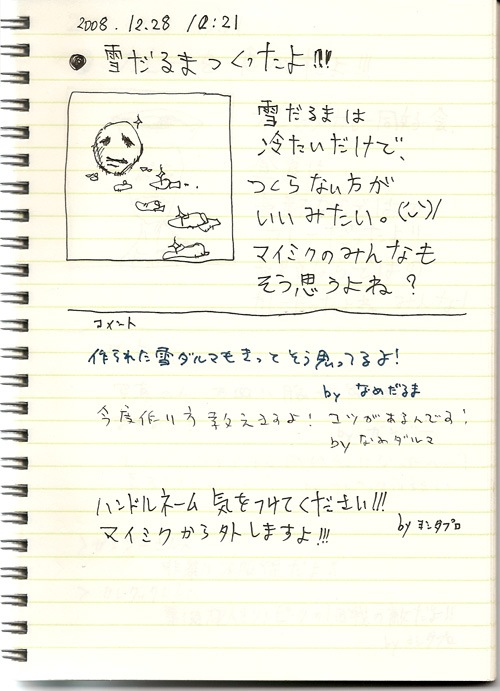 2008.12.28 10:21
雪だるまつくったよ!!!
雪だるまは
冷たいだけで、
つくらない方が
いいみたい。(ˊᵕˋ)/
マイミクのみんなも
そう思うよね?
コメント
作られた雪ダルマもきっとそう思ってるよ!
by なめだるま
今度作り方教えますよ! コツがあるんです!
by なめダルマ
ハンドルネーム 気をつけてください!!!
マイミクから外しますよ!!!
by ヨシタプロ